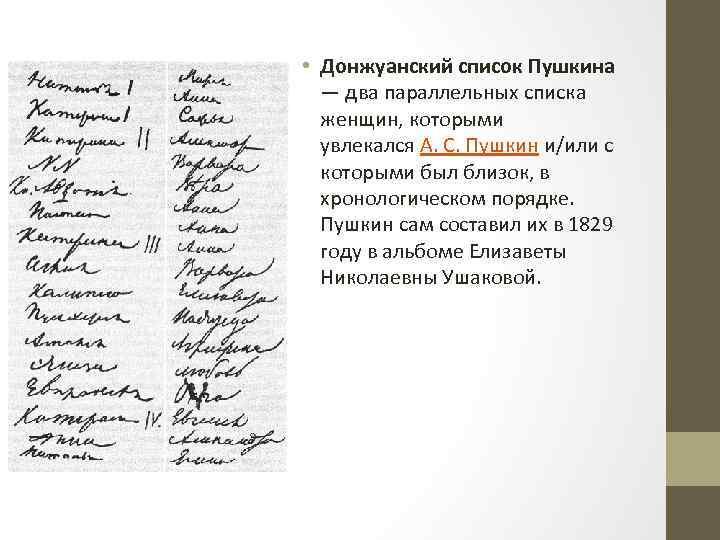 Наталья I
Катерина I
Катерина II
NN
Кн. Авдотия
Настасья
Катерина III
Аглая
Калипсо
Пулхерия
Амалия
Элиза
Евпраксея
Катерина IV.
Анна
Наталья
Мария
Анна
Софья
Александра
Варвара
Вера
Анна
Анна
Анна
Варвара
Елизавета
Надежда
Аграфена
Любовь
Ольга
Евгения
Александра
Елена
• Донжуанский список Пушкина
— два параллельных списка
женщин, которыми
увлекался А. С. Пушкин и/или с
которыми был близок, в
хронологическом порядке.
Пушкин сам составил их в 1829
году в альбоме Елизаветы
Николаевны Ушаковой.